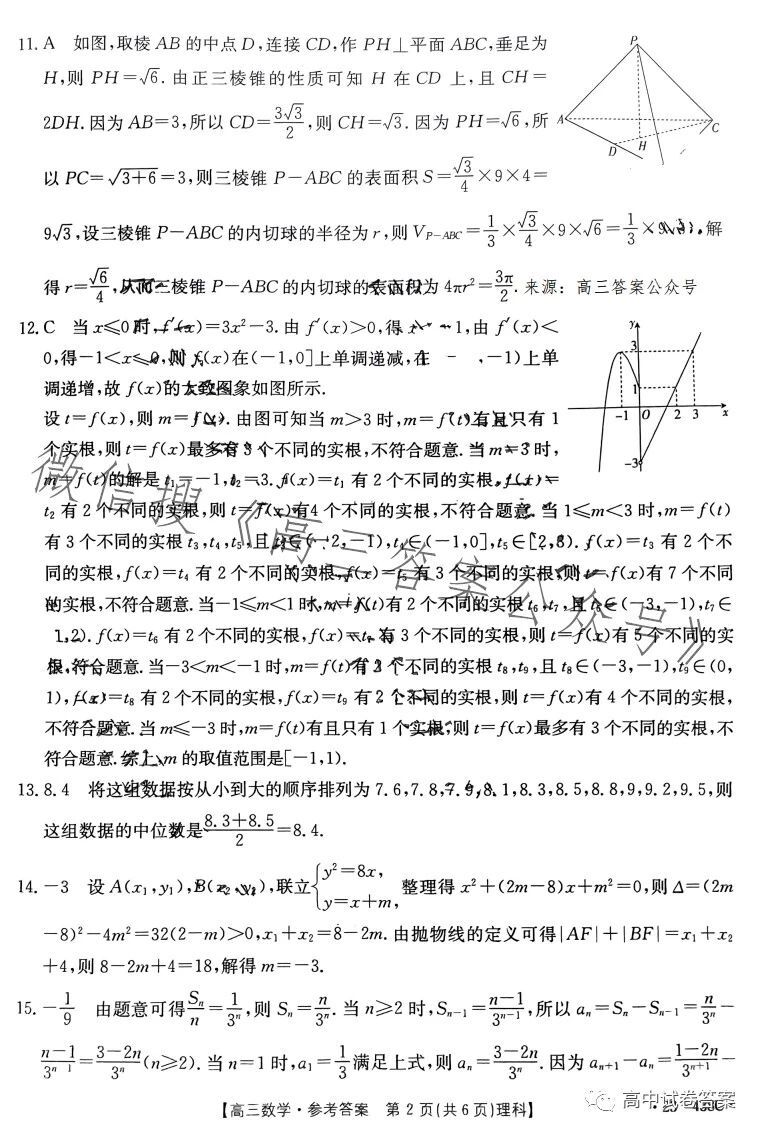 11. A 如图,取棱 AB 的中点 D,连接 CD,作 PH⊥平面 ABC,垂足为
H,则 PH=√6. 由正三棱锥的性质可知 H 在 CD 上,且 CH=
2DH. 因为 AB=3,所以 CD=3√3/2,则 CH=√3. 因为 PH=√6,所
以 PC=√(3+6)=3,则三棱锥 P-ABC 的表面积 S=√3/4×9×4=
9√3,设三棱锥 P-ABC 的内切球的半径为 r,则 V_{P-ABC}=1/3×√3/4×9×√6=1/3× 解
得 r=√6/4,从而三棱锥 P-ABC 的内切球的表面积为 4πr²=3π/2. 来源: 高三答案公众号
P
A
C
D
H
12. C 当 x≤0 时,f′(x)=3x²-3. 由 f′(x)>0,得 x -1,由 f′(x)<
0,得-1<x≤0,则 f(x)在(-1,0]上单调递减,在 ,-1)上单
调递增,故 f(x)的大致图象如图所示.
y
3
1
-1 O 2 3 x
-3
设 t=f(x),则 m=f(t). 由图可知当 m>3 时,m=f(t)有且只有 1
个实根,则 t=f(x)最多有 3 个不同的实根,不符合题意. 当 m=3 时,
m=f(t)的解是 t₁=-1,t₂=3. f(x)=t₁ 有 2 个不同的实根,f(x)=
t₂ 有 2 个不同的实根,则 t=f(x)有4 个不同的实根,不符合题意. 当 1≤m<3 时,m=f(t)
有 3 个不同的实根 t₃,t₄,t₅,且 t₃∈(-2,-1),t₄∈(-1,0],t₅∈[2,3). f(x)=t₃ 有 2 个不
同的实根,f(x)=t₄ 有 2 个不同的实根,f(x)=t₅ 有 3 个不同的实根,则 t=f(x)有 7 个不同
的实根,不符合题意. 当-1≤m<1 时,m=f(t)有 2 个不同的实根 t₆,t₇,且 t₆∈(-3,-1),t₇∈
1,2). f(x)=t₆ 有 2 个不同的实根,f(x)=t₇ 有 3 个不同的实根,则 t=f(x)有 5 个不同的实
根,符合题意. 当-3<m<-1 时,m=f(t)有 2 个不同的实根 t₈,t₉,且 t₈∈(-3,-1),t₉∈(0,
1),f(x)=t₈ 有 2 个不同的实根,f(x)=t₉ 有 2 个不同的实根,则 t=f(x)有 4 个不同的实根,
不符合题意. 当 m≤-3 时,m=f(t)有且只有 1 个实根,则 t=f(x)最多有 3 个不同的实根,不
符合题意. 综上,m 的取值范围是[-1,1).
微信搜《高三答案公众号》
13. 8.4 将这组数据按从小到大的顺序排列为 7.6,7.8,7.9,8.1,8.3,8.5,8.8,9,9.2,9.5,则
这组数据的中位数是(8.3+8.5)/2=8.4.
14. -3 设 A(x₁,y₁),B(x₂,y₂),联立{y²=8x, y=x+m, 整理得 x²+(2m-8)x+m²=0,则 Δ=(2m
-8)²-4m²=32(2-m)>0,x₁+x₂=8-2m. 由抛物线的定义可得|AF|+|BF|=x₁+x₂
+4,则 8-2m+4=18,解得 m=-3.
15. -1/9 由题意可得 Sₙ/n=1/3ⁿ,则 Sₙ=n/3ⁿ. 当 n≥2 时,Sₙ₋₁=(n-1)/3ⁿ⁻¹,所以 aₙ=Sₙ-Sₙ₋₁=n/3ⁿ-
(n-1)/3ⁿ⁻¹=(3-2n)/3ⁿ(n≥2). 当 n=1 时,a₁=1/3 满足上式,则 aₙ=(3-2n)/3ⁿ. 因为 aₙ₊₁-aₙ=(1-2n)/3ⁿ⁺¹-
【高三数学·参考答案 第 2 页(共 6 页)理科】
高中试卷答案